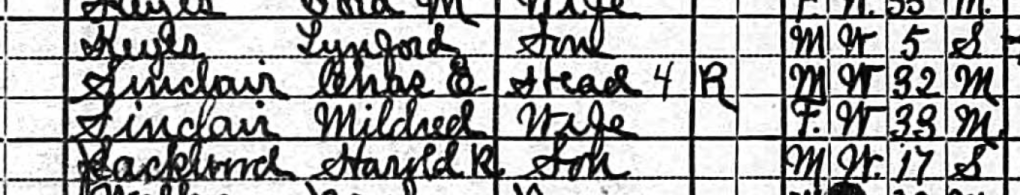 Keyes M Wife F. W. 33 M.
Keyes Lynford Son M W 5 S
Sinclair Chas E Head 4 R M W 32 M
Sinclair Mildred Wife F. W 33 M.
Harold R. Son M W. 17 S